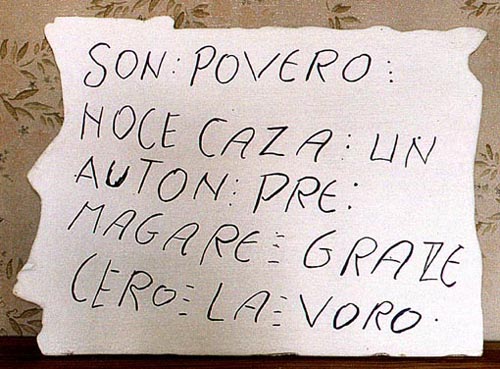 SON: POVERO:
HOCE CAZA: UN
AUTON: PRE:
MAGARE: GRAZE
CERO: LA: VORO.